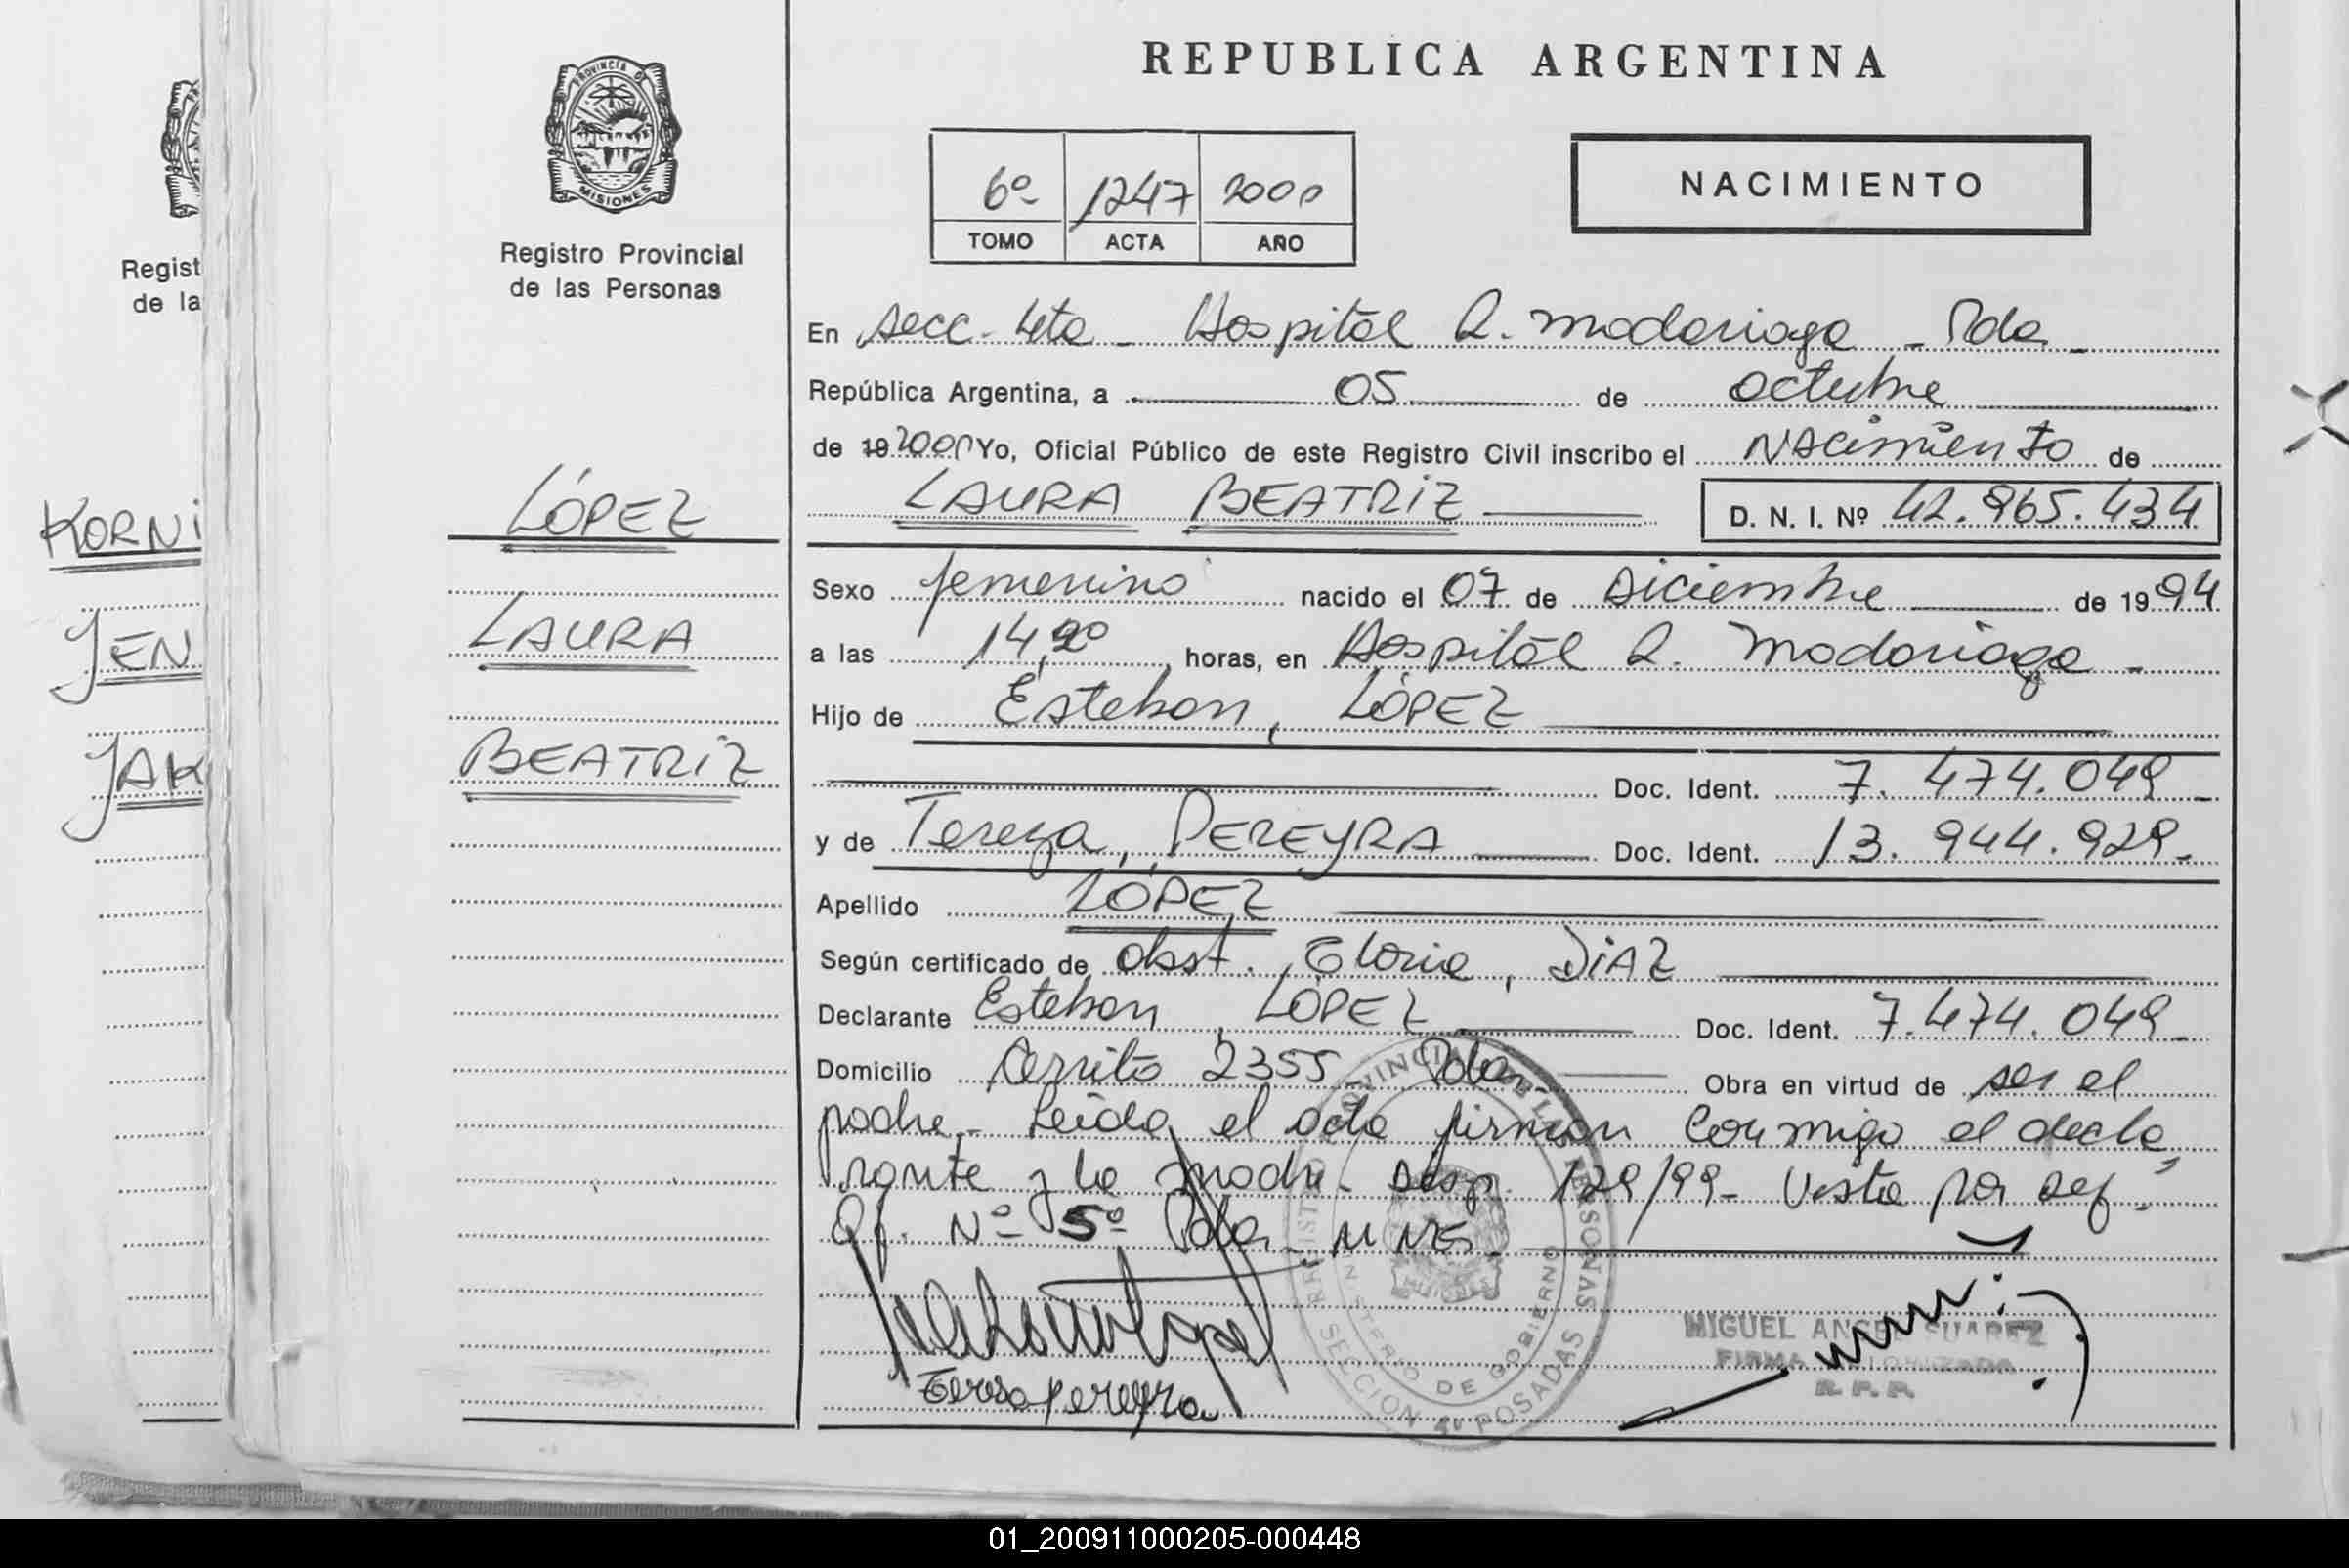 REPUBLICA ARGENTINA
PROVINCIA DE
MISIONES
Registro Provincial
de las Personas
Regist
de la
6º 1247 2000
TOMO ACTA AÑO
NACIMIENTO
En Secc. 4ta - Hospital R. Madariaga - Pdas -
República Argentina, a 05 de octubre
de 19 2000 Yo, Oficial Público de este Registro Civil inscribo el Nacimiento de
LAURA BEATRIZ D. N. I. Nº 42.965.434
KORNI
JEN
JAK
LÓPEZ
LAURA
BEATRIZ
Sexo femenino nacido el 07 de Diciembre de 1994
a las 14,20 horas, en Hospital R. Madariaga -
Hijo de Esteban, LÓPEZ
Doc. Ident. 7.474.049 -
y de Tereza, PEREYRA Doc. Ident. 13.944.929 -
Apellido LÓPEZ
Según certificado de Obst. Gloria, DIAZ
Declarante Esteban, LÓPEZ Doc. Ident. 7.474.049 -
Domicilio Cerrito 2355 - Pdas - Obra en virtud de ser el
padre - Leída el acta firman conmigo el decla
rante y la madre - Disp. 129/99 - Vista por Def.
Of. Nº 5º Pdas - MNES -
Teresa pereyra
REGISTRO PROVINCIAL DE LAS PERSONAS
MINISTERIO DE GOBIERNO
SECCION 4º POSADAS
MIGUEL ANGEL SUAREZ
FIRMA AUTORIZADA
R. P. P.
01_200911000205-000448